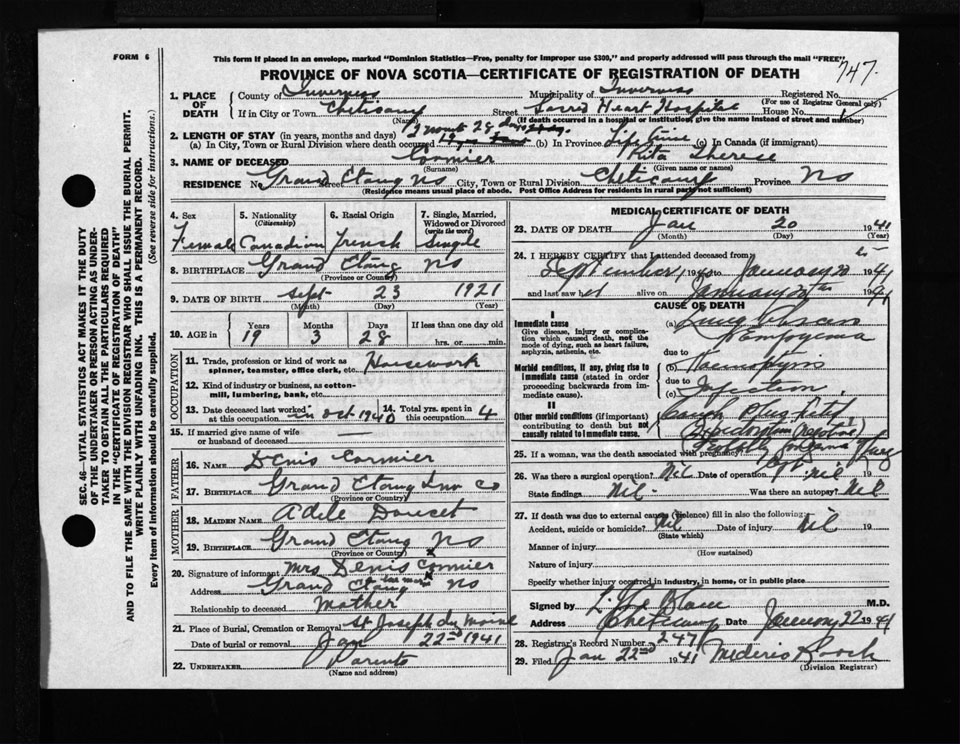 FORM 6
This form if placed in an envelope, marked "Dominion Statistics—Free, penalty for improper use $300," and properly addressed will pass through the mail "FREE"
747.
PROVINCE OF NOVA SCOTIA—CERTIFICATE OF REGISTRATION OF DEATH
1. PLACE OF DEATH County of Inverness Municipality of Inverness Registered No.
(For use of Registrar General only)
If in City or Town Cheticamp Street Sacred Heart Hospital House No.
(Name) (If death occurred in a hospital or institution, give the name instead of street and number)
2. LENGTH OF STAY (in years, months and days) 28 days
(a) In City, Town or Rural Division where death occurred (b) In Province Life time (c) In Canada (if immigrant)
3. NAME OF DECEASED Cormier Rita Therese
(Surname) (Given name or names)
RESIDENCE No. Grand Etang NS Street City, Town or Rural Division Cheticamp Province NS
(Residence means usual place of abode. Post Office Address for residents in rural parts not sufficient)
4. Sex Female
5. Nationality (Citizenship) Canadian
6. Racial Origin French
7. Single, Married, Widowed or Divorced (write the word) Single
8. BIRTHPLACE Grand Etang NS
(Province or Country)
9. DATE OF BIRTH Sept 23 1921
(Month) (Day) (Year)
10. AGE in Years 19 Months 3 Days 28 If less than one day old
hrs. or min.
OCCUPATION
11. Trade, profession or kind of work as spinner, teamster, office clerk, etc. Housework
12. Kind of industry or business, as cotton-mill, lumbering, bank, etc.
13. Date deceased last worked at this occupation in Oct 1940
14. Total yrs. spent in this occupation 4
15. If married give name of wife or husband of deceased —
FATHER
16. NAME Denis Cormier
17. BIRTHPLACE Grand Etang Inv Co
(Province or Country)
MOTHER
18. MAIDEN NAME Adele Doucet
19. BIRTHPLACE Grand Etang NS
(Province or Country)
20. Signature of informant Mrs Denis Cormier
Address Grand Etang NS
Relationship to deceased Mother
21. Place of Burial, Cremation or Removal St Joseph du Moine
Date of burial or removal Jan 22nd 1941
22. UNDERTAKER Parents
(Name and address)
MEDICAL CERTIFICATE OF DEATH
23. DATE OF DEATH Jan 20 1941
(Month) (Day) (Year)
24. I HEREBY CERTIFY that I attended deceased from
September 1940 to January 20 1941
and last saw her alive on January 20th 1941
CAUSE OF DEATH
I
Immediate cause
Give disease, injury or complication which caused death, not the mode of dying, such as heart failure, asphyxia, asthenia, etc.
(a) Lung Abscess
Empyema
due to
Morbid conditions, if any, giving rise to immediate cause (stated in order proceeding backwards from immediate cause).
(b) Haemoptysis
due to
(c) Infection
II
Other morbid conditions (if important) contributing to death but not causally related to immediate cause.
25. If a woman, was the death associated with pregnancy?
26. Was there a surgical operation? Nil Date of operation nil 19
State findings Nil. Was there an autopsy? Nil
27. If death was due to external causes (violence) fill in also the following:
Accident, suicide or homicide? Nil Date of injury Nil 19
(State which)
Manner of injury
(How sustained)
Nature of injury
Specify whether injury occurred in industry, in home, or in public place
Signed by M.D.
Address Cheticamp Date January 22 1941
28. Registrar's Record Number 2471
29. Filed Jan 22nd 1941
(Division Registrar)
SEC. 46—VITAL STATISTICS ACT MAKES IT THE DUTY
OF THE UNDERTAKER OR PERSON ACTING AS UNDERTAKER TO OBTAIN ALL THE PARTICULARS REQUIRED
IN THE "CERTIFICATE OF REGISTRATION OF DEATH"
AND TO FILE THE SAME WITH THE DIVISION REGISTRAR WHO SHALL ISSUE THE BURIAL PERMIT.
WRITE PLAINLY WITH UNFADING INK. THIS IS A PERMANENT RECORD.
Every item of information should be carefully supplied. (See reverse side for instructions.)